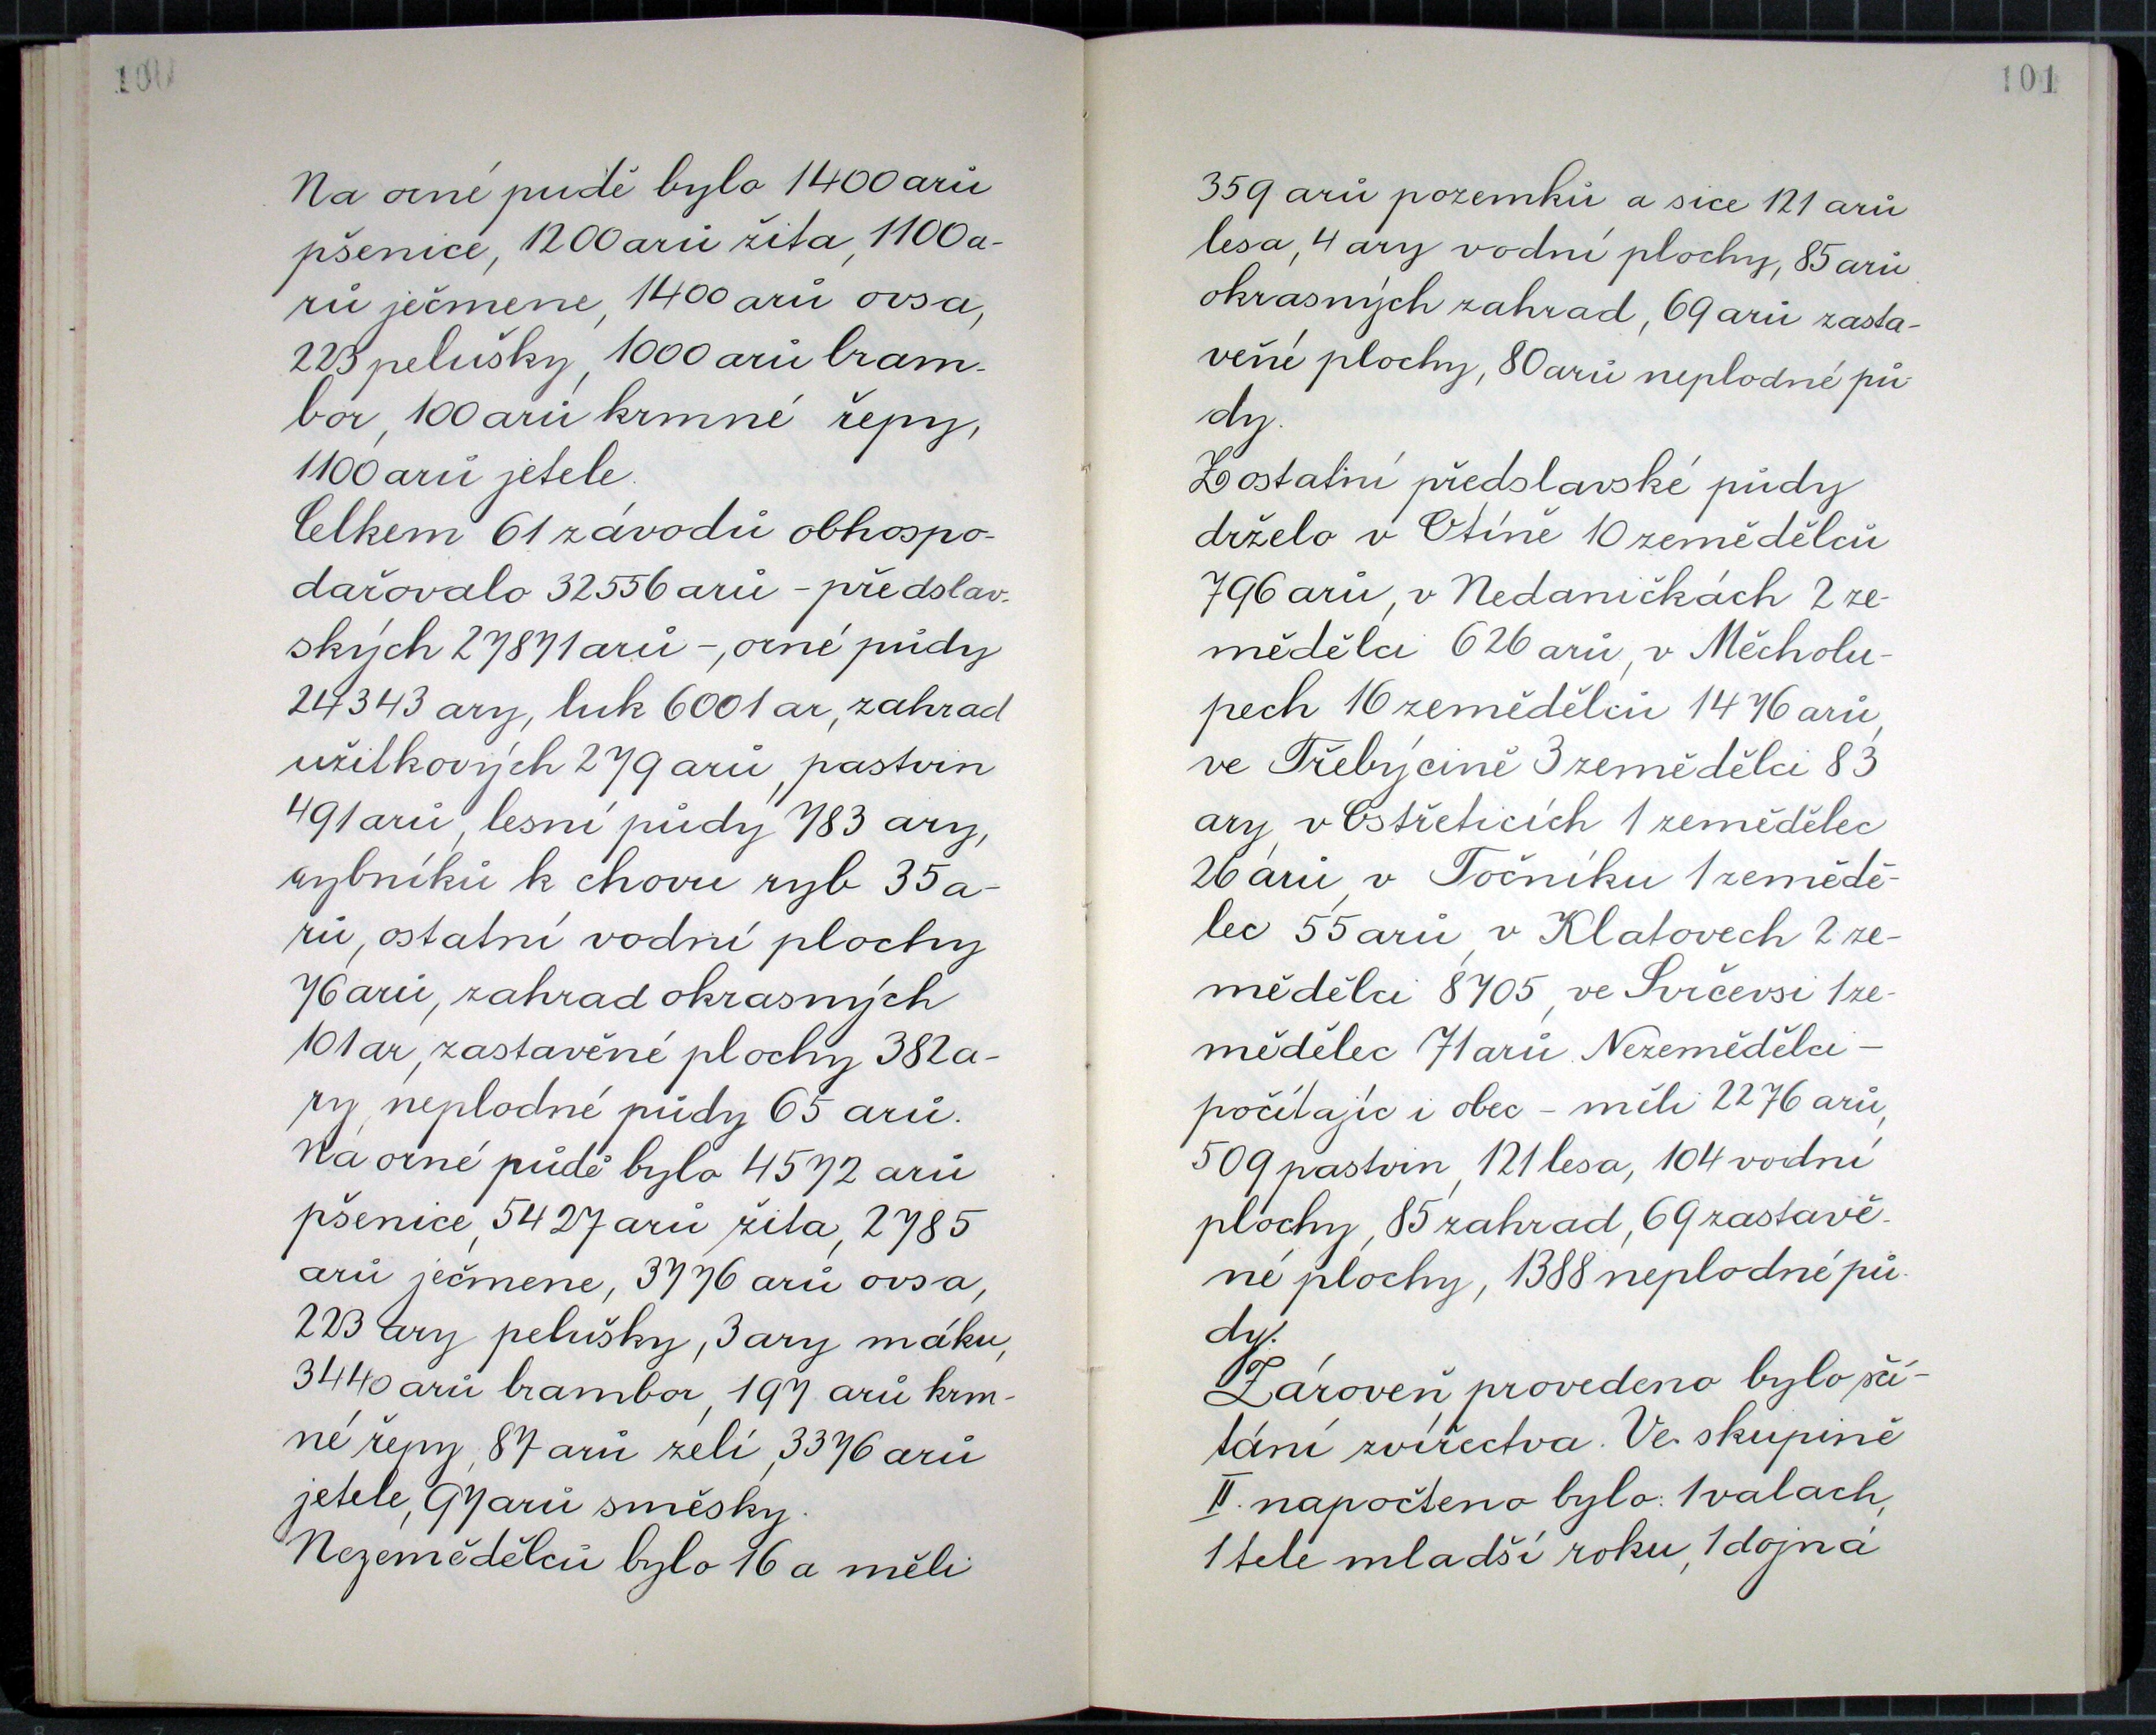 100
Na orné pudě bylo 1400 arů
pšenice, 1200 arů žita, 1100 a-
rů ječmene, 1400 arů ovsa,
223 pelušky, 1000 arů bram-
bor, 100 arů krmné řepy,
1100 arů jetele.
Celkem 61 závodů obhospo-
dařovalo 32556 arů - předslav-
ských 27871 arů -, orné půdy
24343 ary, luk 6001 ar, zahrad
užitkových 279 arů, pastvin
491 arů, lesní půdy 783 ary,
rybníků k chovu ryb 35 a-
rů, ostatní vodní plochy
76 arů, zahrad okrasných
101 ar, zastavěné plochy 382 a-
ry, neplodné půdy 65 arů.
Na orné půdě bylo 4572 arů
pšenice, 5427 arů žita, 2785
arů ječmene, 3776 arů ovsa,
223 ary pelušky, 3 ary máku,
3440 arů brambor, 197 arů krm-
né řepy, 87 arů zelí, 3376 arů
jetele, 97 arů směsky.
Nezemědělců bylo 16 a měli
101
359 arů pozemků a sice 121 arů
lesa, 4 ary vodní plochy, 85 arů
okrasných zahrad, 69 arů zasta-
veňé plochy, 80 arů neplodné pů-
dy.
Z ostatní předslavské půdy
drželo v Otíně 10 zemědělců
796 arů, v Nedaničkách 2 ze-
mědělci 626 arů, v Měcholu-
pech 16 zemědělců 1476 arů,
ve Třebýcině 3 zemědělci 83
ary, v Ostřeticích 1 zemědělec
26 arů, v Točníku 1 zemědě-
lec 55 arů, v Klatovech 2 ze-
mědělci 8705, ve Svrčevsi 1 ze-
mědělec 71 arů. Nezemědělci -
počítajíc i obec - měli 2276 arů,
509 pastvin, 121 lesa, 104 vodní
plochy, 85 zahrad, 69 zastavě-
né plochy, 1388 neplodné pů-
dy.
Zároveň provedeno bylo sčí-
tání zvířectva. Ve skupině
II. napočteno bylo: 1 valach,
1 tele mladší roku, 1 dojná